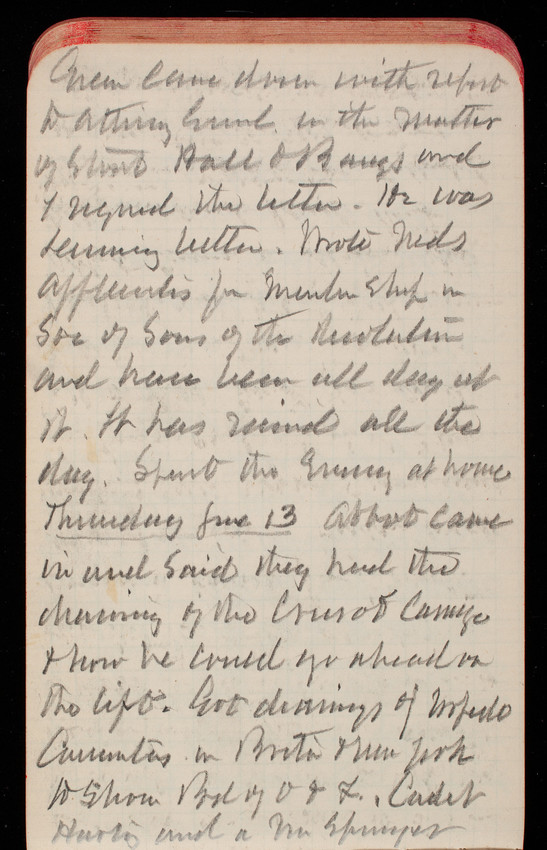 came down with report
to Attny Genl. in the matter
of Hall & Bangs and
I signed the letter. He was
letter. Wrote Neds
for Membership in
Soc of Sons of the Revolution
and have been all day at
it. It has rained all the
day. Spent the Evening at home
Thursday June 13 Abbot came
in and said they had the
drawing of the Creusot Carriage
& now he could go ahead on
the lift. Got drawings of Torpedo
in Boston & New York
to show Bd of O & F. Cadet
and a Mr Springer